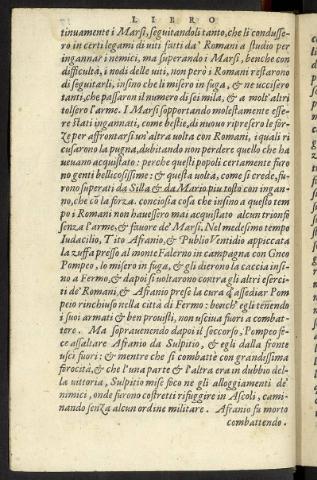 LIBRO
tinuamente i Marsi, seguitandoli tanto, che li condusse-
ro in certi legami di uiti fatti da' Romani a studio per
ingannar i nemici, ma superando i Marsi, benche con
difficultà, i nodi delle uiti, non però i Romani restarono
di seguitarli, insino che li misero in fuga, & ne uccisero
tanti, che passaron il numero di sei mila, & a molt'altri
tolsero l'arme. I Marsi sopportando molestamente esse-
re stati ingannati, come bestie, di nuouo ripresero le for-
ze per affrontarsi un'altra uolta con Romani, i quali ri
cusarono la pugna, dubitando non perdere quello che ha
ueuano acquistato: perche questi popoli certamente furo
no genti bellicosissime: & questa uolta, come si crede, fu-
rono superati da Silla & da Mario piu tosto con ingan-
no, che cō la forza. conciosia cosa che insino a questo tem
po i Romani non hauessero mai acquistato alcun trionfo
senza l'arme, & fauore de' Marsi. Nel medesimo tempo
Iudacilio, Tito Afranio, & Publio Ventidio appiccata
la zuffa presso al monte Falerno in campagna con Gneo
Pompeo, lo misero in fuga, & gli dierono la caccia insi-
no a Fermo, & dapoi si uoltarono contra gli altri eserci-
ti de' Romani, & Afranio prese la cura d'assediar Pom
peio rinchiuso nella città di Fermo: bench' egli tenendo
i suoi armati & ben prouisti, non usciua fuori a combat-
tere. Ma soprauenendo dapoi il soccorso, Pompeo fe-
ce assaltare Afranio da Sulpitio, & egli dalla fronte
usci fuori: & mentre che si combattè con grandissima
ferocità, & che l'una parte & l'altra era in dubbio del-
la uittoria, Sulpitio mise foco ne gli alloggiamenti de'
nimici, onde furono costretti rifuggire in Ascoli, cami-
nando senza alcun ordine militare. Afranio fu morto
combattendo.